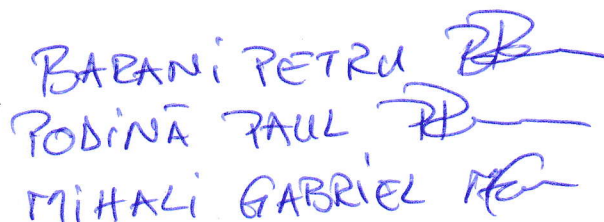 BARANI PETRU
PODINĂ PAUL
MIHALI GABRIEL